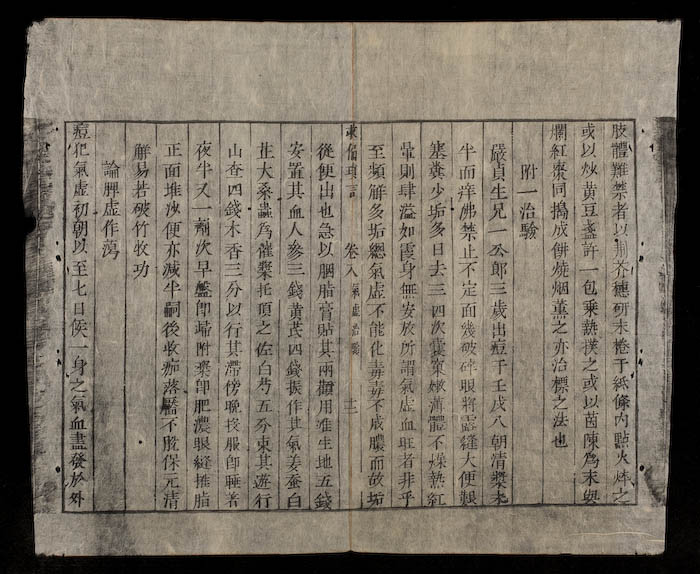 肢體難禁者以荊芥穗研末捲于紙條內點火焠之
或以炒黃豆盞許一包乘熱撲之或以茵陳為末與
爛紅棗同搗成餅燒烟薰之亦治標之法也
附一治驗
嚴貞生兄一公郎三歲出痘于壬戌八朝清漿未
半而癢佛禁止不定面幾破碎眼將露縫大便艱
塞糞少垢多日去三四次囊窠嫩薄體不燥熱紅
暈則肆溢如霞身無安放所謂氣虛血旺者非乎
至頻解多垢總氣虛不能化毒毒不成膿而故垢
東倡瑣言 卷八 氣虛治驗 十二
從便出也急以胭脂膏貼其兩顴用准生地五錢
安置其血人參三錢黃芪四錢振作其氣姜蚕白
芷大桑蟲為催漿托頂之佐白芍五分束其遊行
山查四錢木香三分以行其滯傍晚投服卽睡著
夜半又一劑次早盤卽歸附漿卽肥濃眼縫推脂
正面堆沙便亦減半嗣後收痂落靨不脫保元清
解易若破竹收功
論脾虛作瀉
痘犯氣虛初朝以至七日候一身之氣血盡發於外